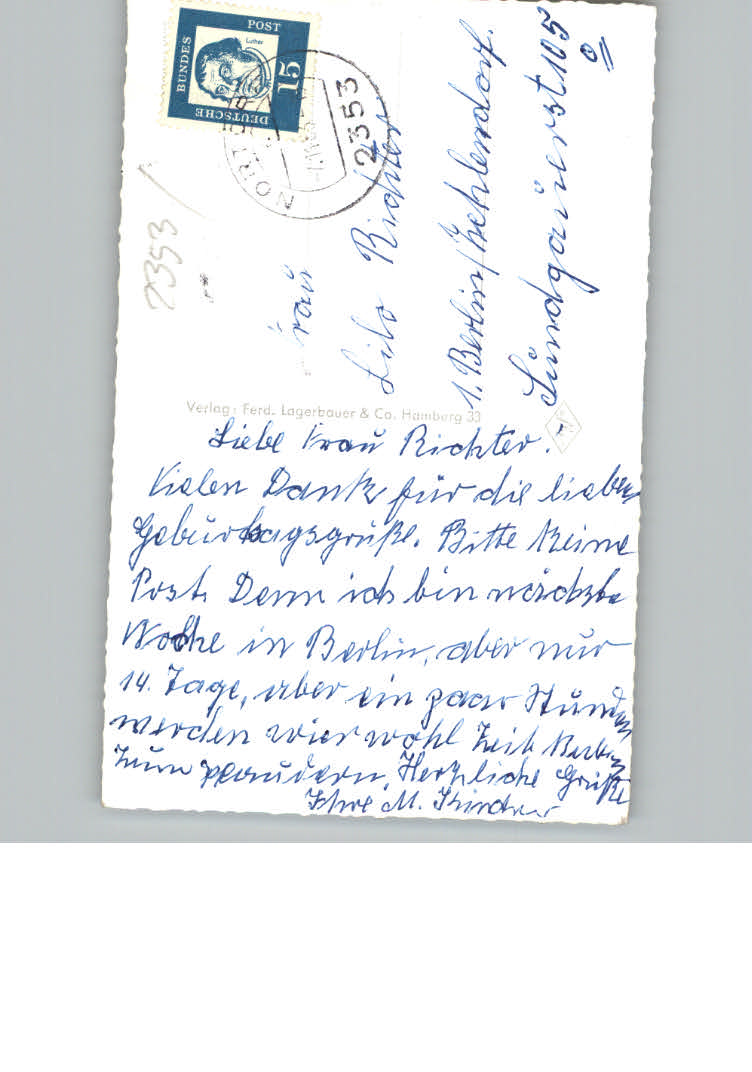 DEUTSCHE
BUNDES
POST
Luther
15
NORT
2353
2353
Frau
Lilo Richter
1. Berlin/Zehlendorf.
Sündgauerst 105
Verlag: Ferd. Lagerbauer & Co. Hamburg 33
Liebe Frau Richter.
Vielen Dank für die lieben
Geburdsagsgrüße. Bitte keine
Post. Denn ich bin nächste
Woche in Berlin, aber nur
14. Tage, aber ein paar Stunden
werden wier wohl Zeit
zum plaudern. Herzliche Grüße
Ihre M.